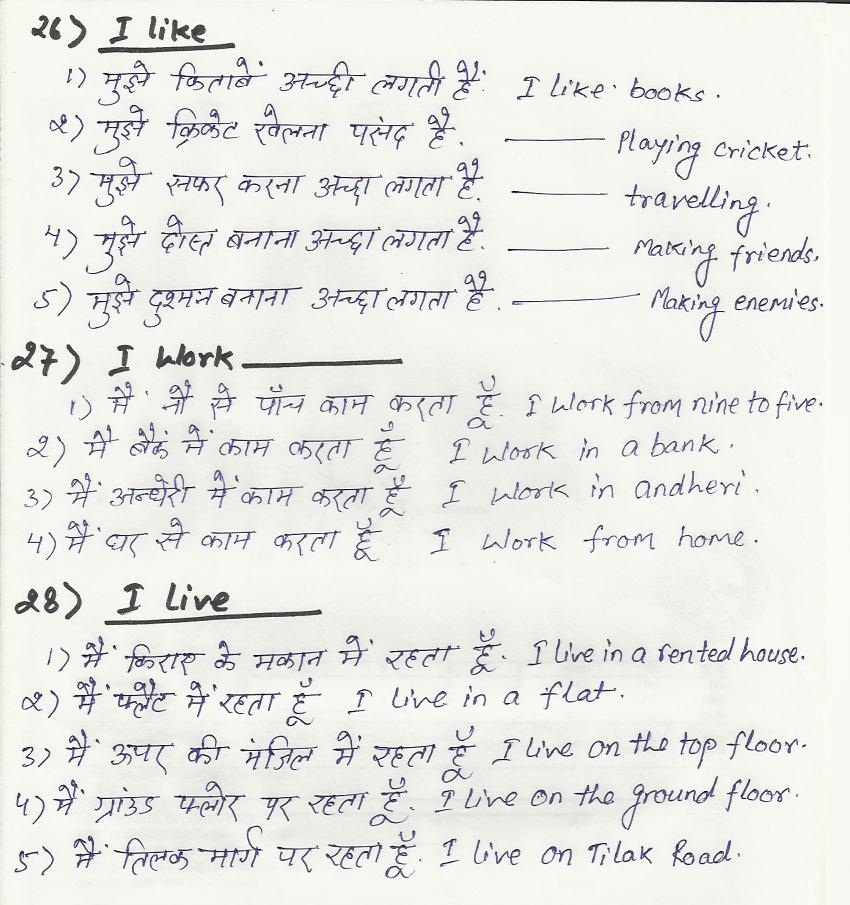 26) I like
1) मुझे किताबें अच्छी लगती हैं. I like books.
2) मुझे क्रिकेट खेलना पसंद है. —— Playing cricket.
3) मुझे सफर करना अच्छा लगता है. —— travelling.
4) मुझे दोस्त बनाना अच्छा लगता है. —— Making friends.
5) मुझे दुश्मन बनाना अच्छा लगता है. —— Making enemies.
27) I Work ——
1) मैं नौ से पाँच काम करता हूँ. I Work from nine to five.
2) मै बैंकं में काम करता हूँ I Work in a bank.
3) मैं अन्धेरी में काम करता हूँ I Work in andheri.
4) मैं घर से काम करता हूँ. I Work from home.
28) I Live
1) मैं किराए के मकान में रहता हूँ. I live in a rented house.
2) मैं फ्लैट में रहता हूँ I live in a flat.
3) मैं ऊपर की मंजिल में रहता हूँ I live on the top floor.
4) मैं ग्रांउड फ्लोर पर रहता हूँ. I live on the ground floor.
5) मैं तिलक मार्ग पर रहता हूँ. I live on Tilak Road.